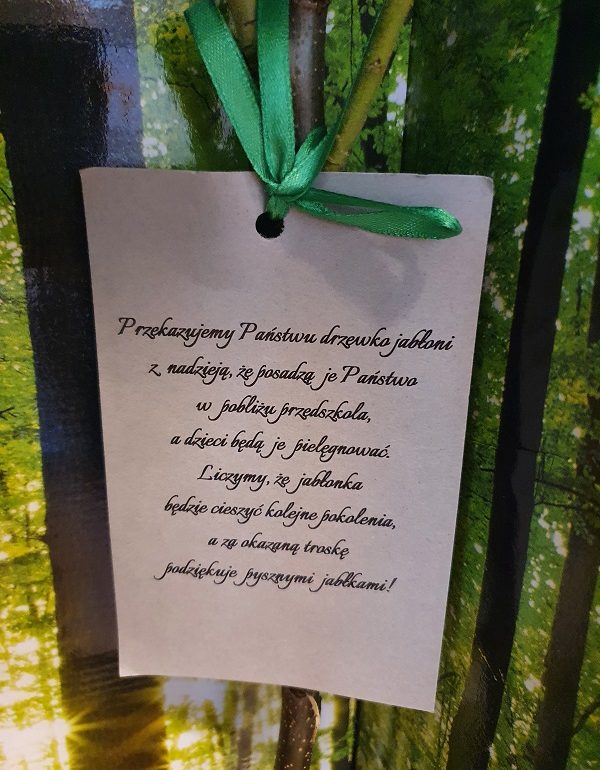 Przekazujemy Państwu drzewko jabłoni
z nadzieją, że posadzą je Państwo
w pobliżu przedszkola,
a dzieci będą je pielęgnować.
Liczymy, że jabłonka
będzie cieszyć kolejne pokolenia,
a za okazaną troskę
podziękuje pysznymi jabłkami!